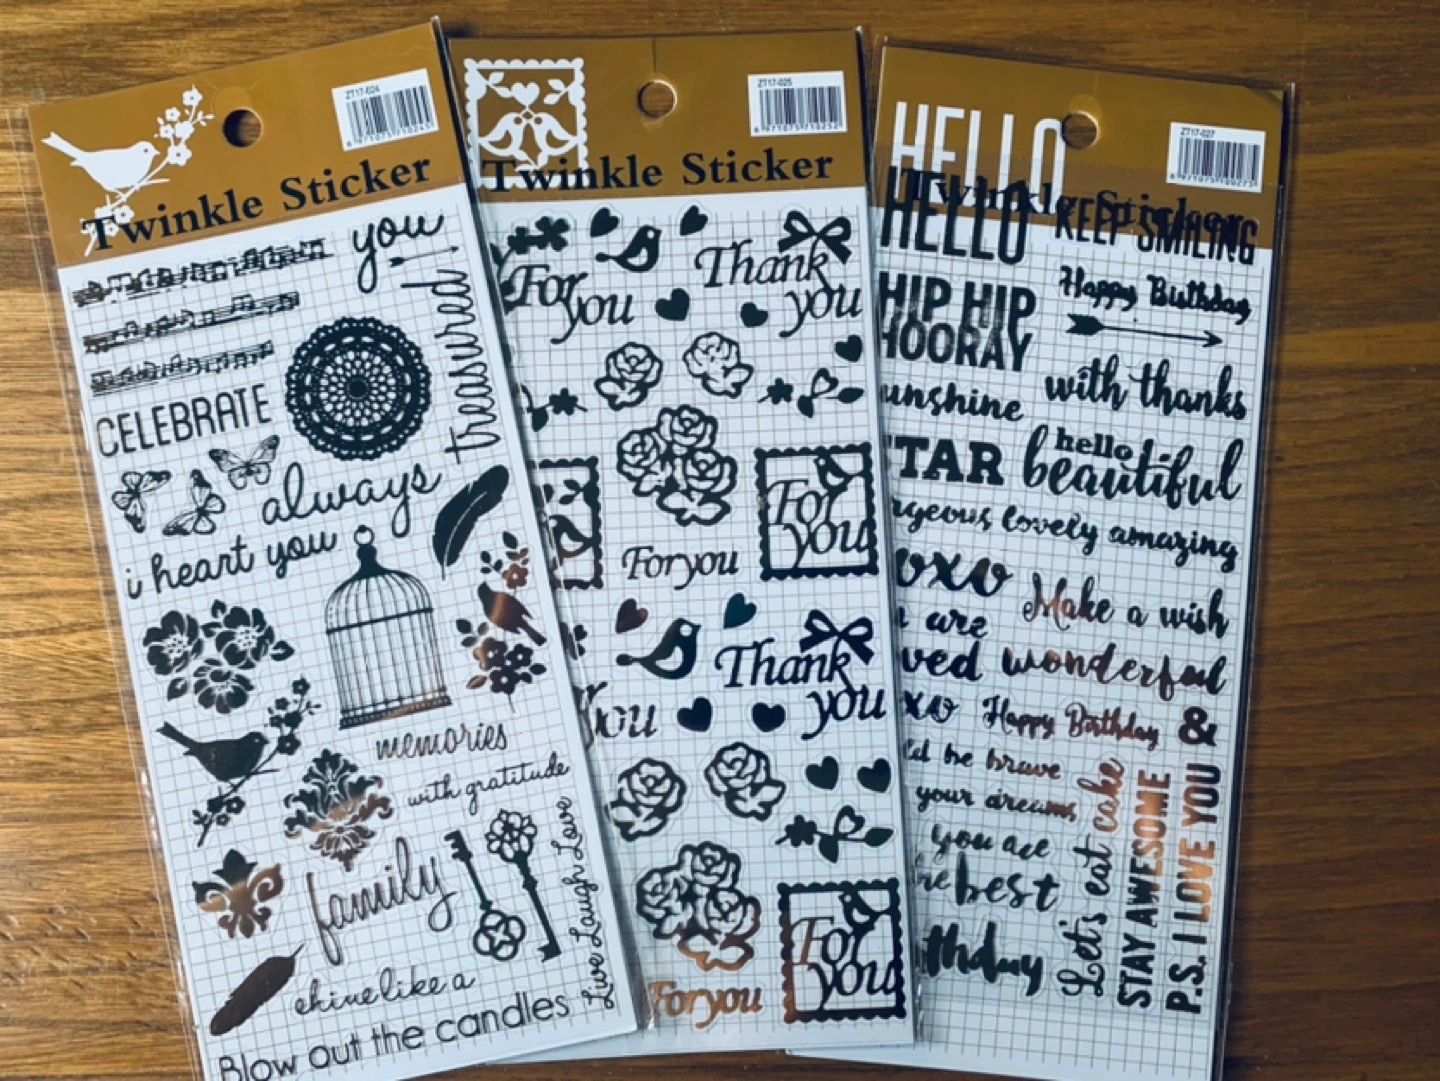 ZT17-024
6 971075 710245
Twinkle Sticker
you
treasured
CELEBRATE
always
i heart you
memories
with gratitude
family
Live Laugh Love
shine like a
Blow out the candles
ZT17-025
6 971075 710252
Twinkle Sticker
For you
Thank you
For you
For you
Thank you
you
For you
For you
ZT17-027
HELLO
Twinkle Sticker
HELLO
KEEP SMILING
HIP HIP
HOORAY
Happy Birthday
with thanks
unshine
TAR
hello
beautiful
rgeous lovely amazing
oxo
Make a wish
are
ved
wonderful
xo
Happy Birthday
&
ld be brave
your dreams
you are
he best
thday
Let's eat cake
STAY AWESOME
P.S. I LOVE YOU